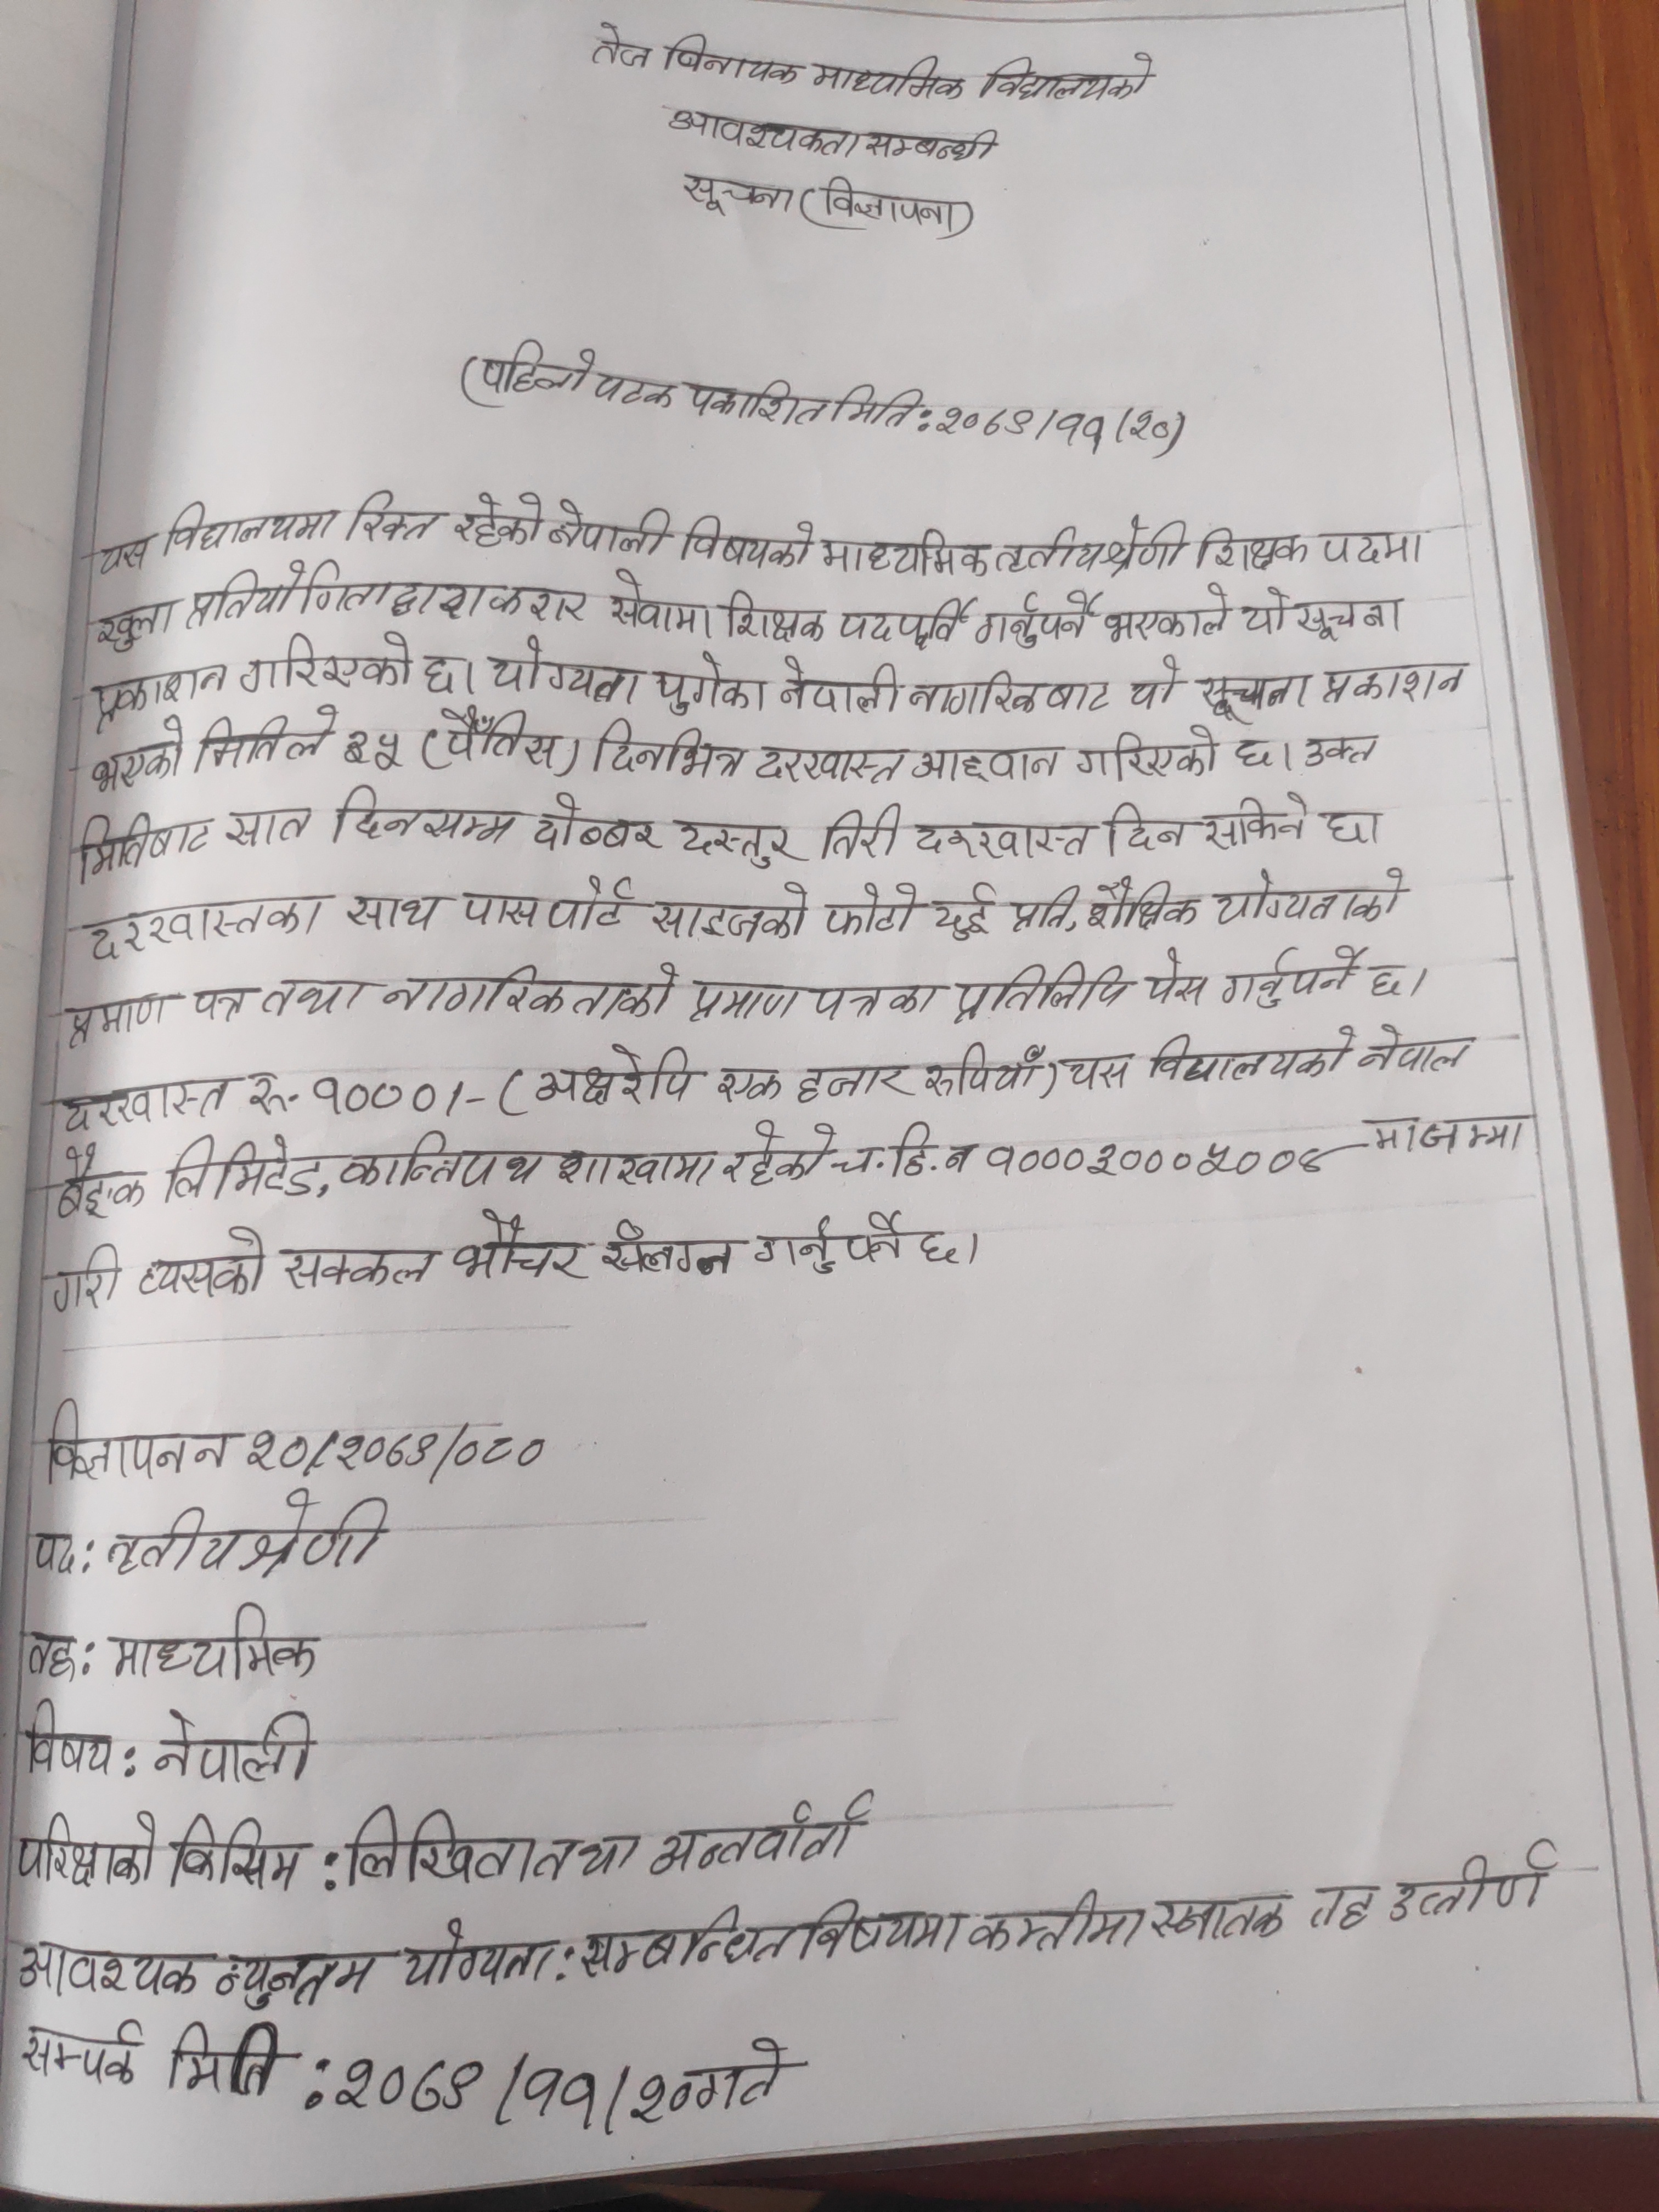 तेज विनायक माध्यमिक विद्यालयको
आवश्यकता सम्बन्धी
सूचना (विज्ञापना)
(पहिलो पटक पकाशित मिति: २०७९/११/२०)
यस विद्यालयमा रिक्त रहेको नेपाली विषयको माध्यमिक तृतीय श्रेणी शिक्षक पदमा
खुला प्रतियोगिताद्वारा करार सेवामा शिक्षक पदपूर्ति गर्नुपर्ने भएकाले यो सूचना
प्रकाशन गरिएको छ। योग्यता पुगेका नेपाली नागरिकबाट यो सूचना प्रकाशन
भएको मितिले ३५ (पैँतिस) दिनभित्र दरखास्त आह्वान गरिएको छ। उक्त
मितिबाट सात दिनसम्म दोब्बर दस्तुर तिरी दरखास्त दिन सकिने छ।
दरखास्तका साथ पासपोर्ट साइजको फोटो दुई प्रति, शैक्षिक योग्यताको
प्रमाण पत्र तथा नागरिकताको प्रमाण पत्रका प्रतिलिपि पेस गर्नुपर्ने छ।
दरखास्त रू. १०००/- (अक्षरेपि एक हजार रुपियाँ) यस विद्यालयको नेपाल
बैङ्क लिमिटेड, कान्तिपथ शाखामा रहेको च. हि. न १०००३०००५००४ मा जम्मा
गरी त्यसको सक्कल भौचर सँलग्न गर्नुपर्ने छ।
विज्ञापन न २०/२०७९/०८०
पद: तृतीय श्रेणी
तह: माध्यमिक
विषय: नेपाली
परिक्षाको किसिम : लिखिता तथा अन्तर्वार्ता
आवश्यक न्युनतम योग्यता: सम्बन्धित विषयमा कम्तीमा स्नातक तह उत्तीर्ण
सम्पर्क मिति : २०७९/११/२० गते